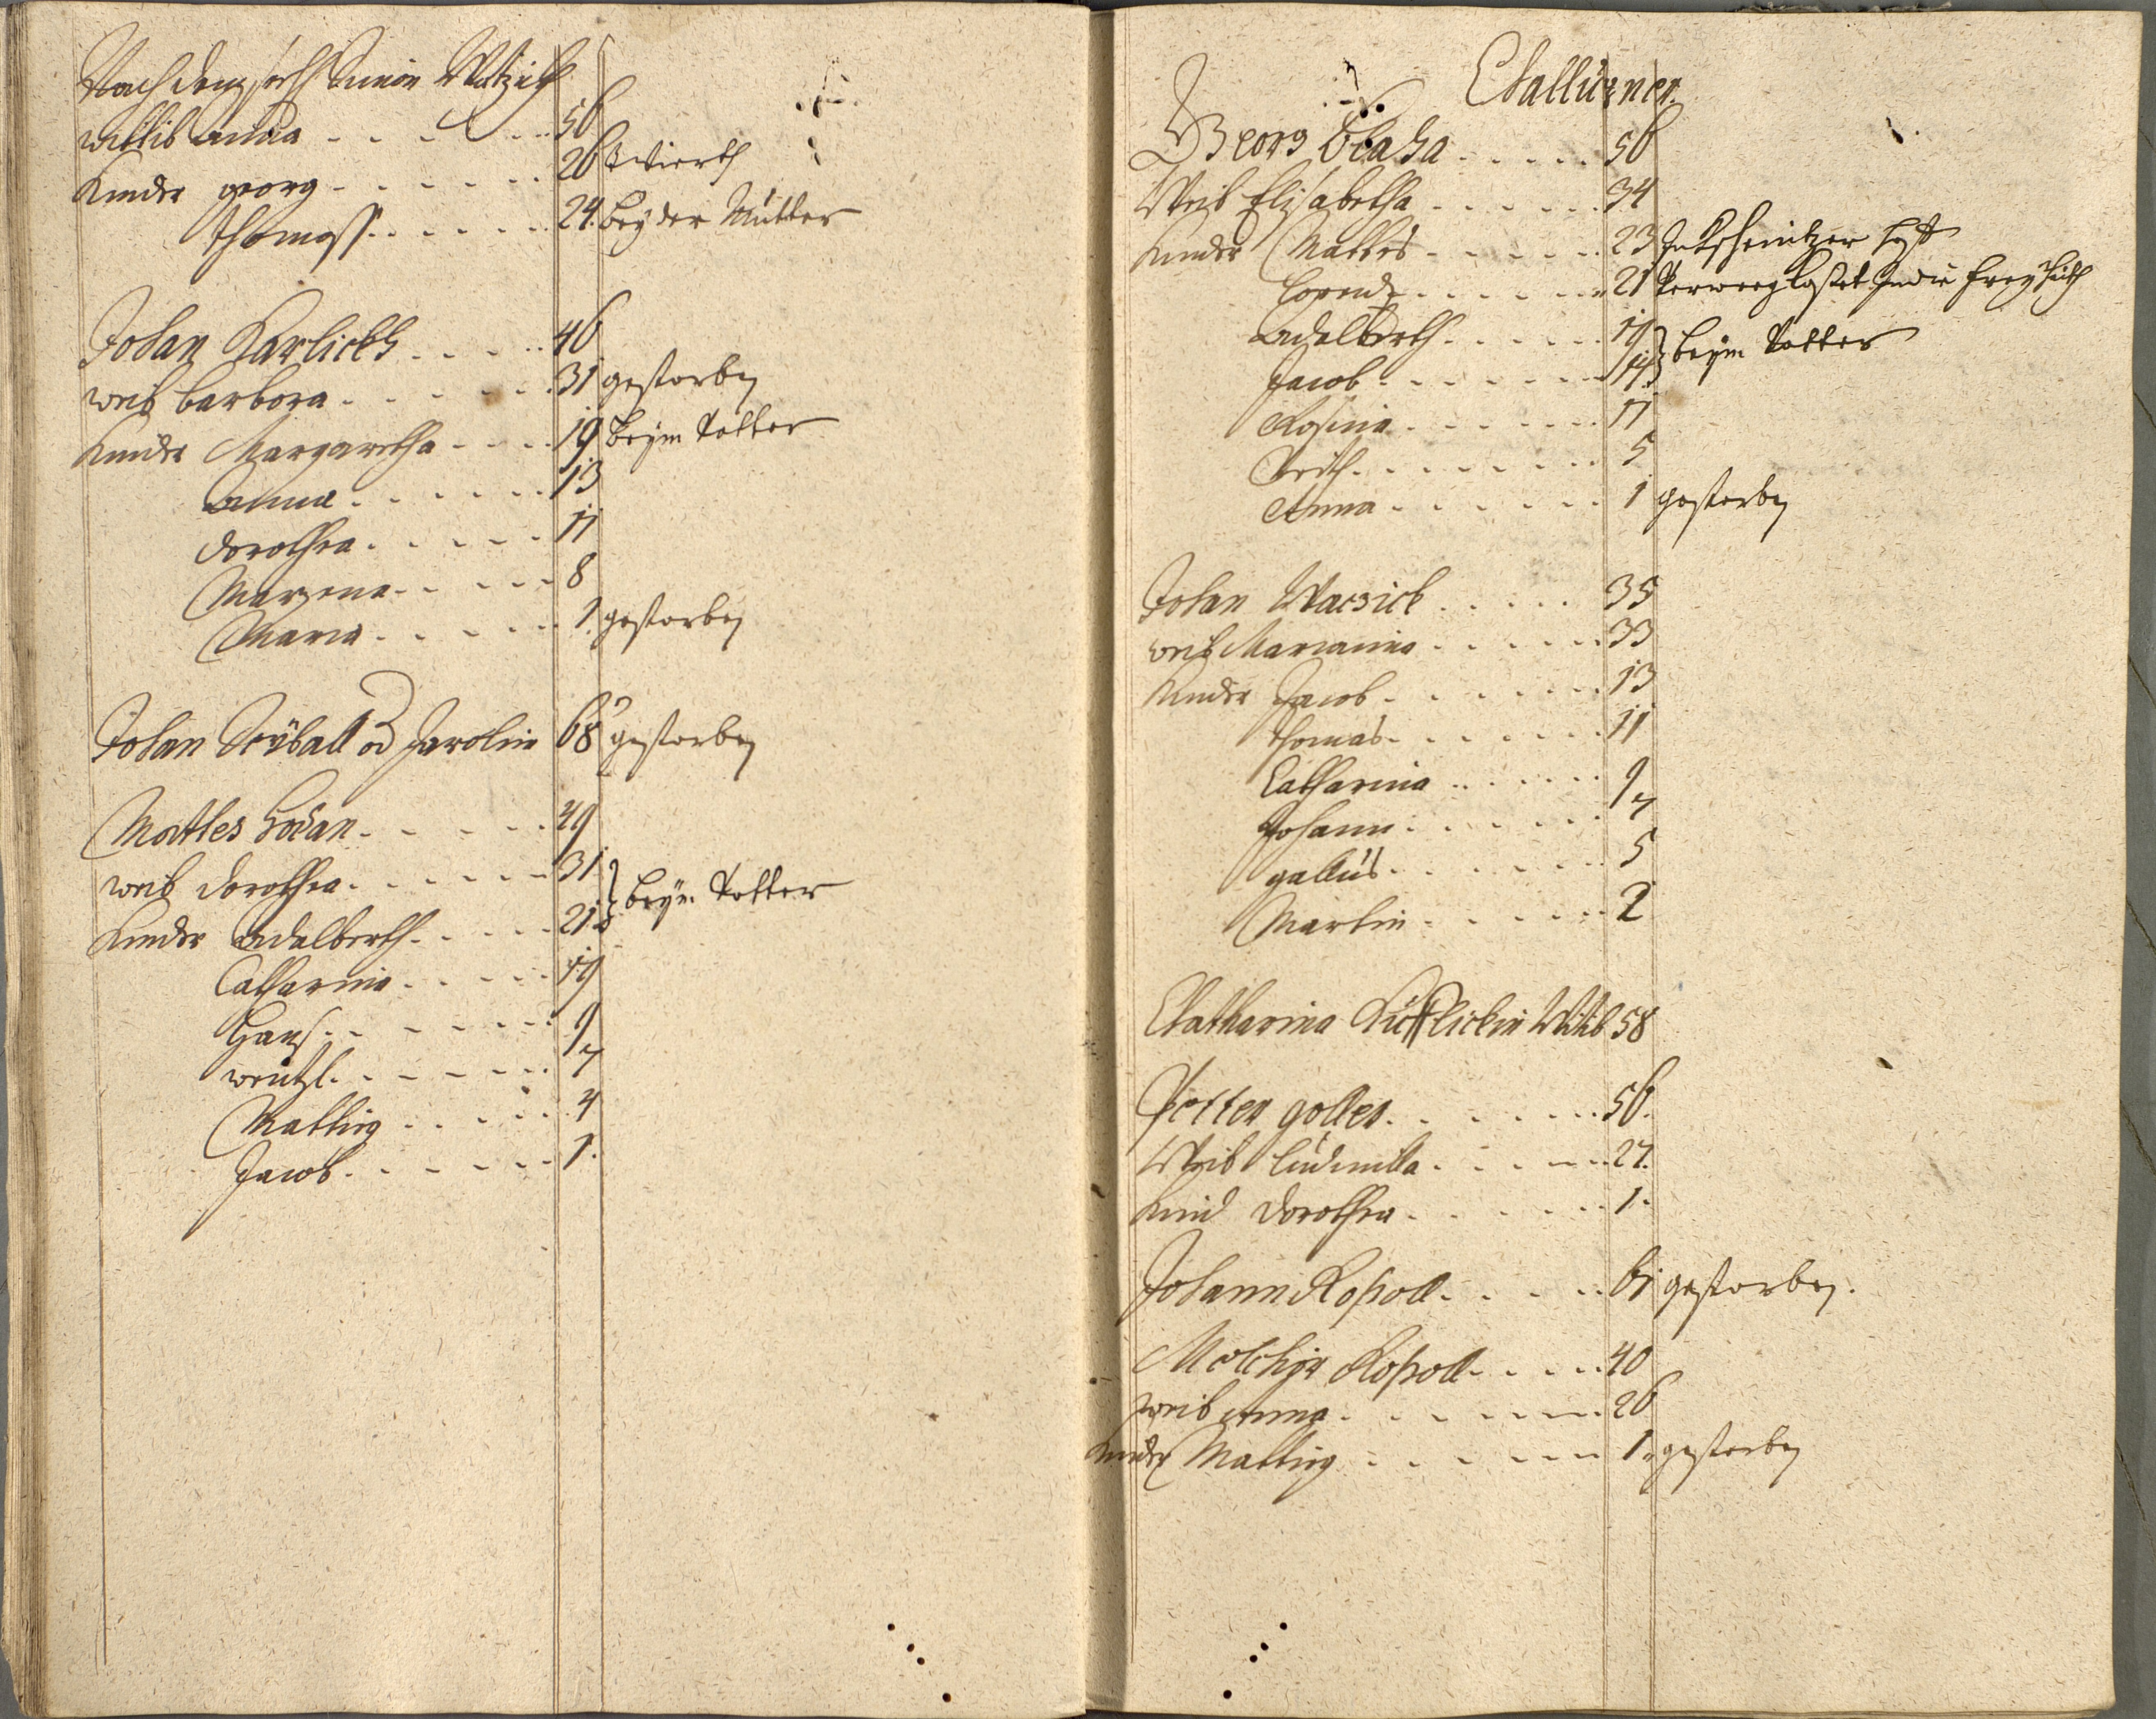 Nach dem sell Simon Watzick
wittib anna - - - - 56
Kinder georg - - - - - - 26 Wierth
Thomass - - - - - 24. bey der Mutter
Johan Karlickh - - - - 46
weib barbora - - - - - 31 gestorben
Kinder Margaretha - - - - 19 beym Vatter
anna - - - - - - 13
dorothea - - - - - 11
Marzena - - - - - 8
Maria - - - - - - 1. gestorben
Johan Seÿball od Jarolim 68 gestorben
Mattes Hodan - - - - - 49
weib dorothea - - - - - - 31
Kinder adalberth - - - - - 21 beym Vatter
Catharina - - - - - 19
Hans - - - - - - 9
wentzl - - - - - - 7
Matthig - - - - - 4
Jacob - - - - - - 1.
Challupner
Georg Blaha - - - - - 56
Weib Elisabetha - - - - - - 34
Kinder Mattes - - - - - 23
Lorentz - - - - - - 21
adalberth - - - - - 19
Jacob - - - - - - 14 beym Vatter
Rosina - - - - - - 11
Veith - - - - - - - 5
Anna - - - - - - 1 gestorben
Johan Waczick - - - - - 35
weib Marianna - - - - - - 33
Kinder Jacob - - - - - - 13
Thomas - - - - - - 11
Catharina - - - - - 9
Johann - - - - - - 7
gallus - - - - - - 5
Martin - - - - - - 2
Chatharina Wittib 58
Petter goller - - - - - - 56.
Weib Ludmilla - - - - - - 27.
Kind dorothea - - - - - - 1.
Johann Kopoll - - - - - 61 gestorben.
Melchior Kopoll - - - - - 40
weib anna - - - - - - 26
Kinder Matthig - - - - - - 1. gestorben